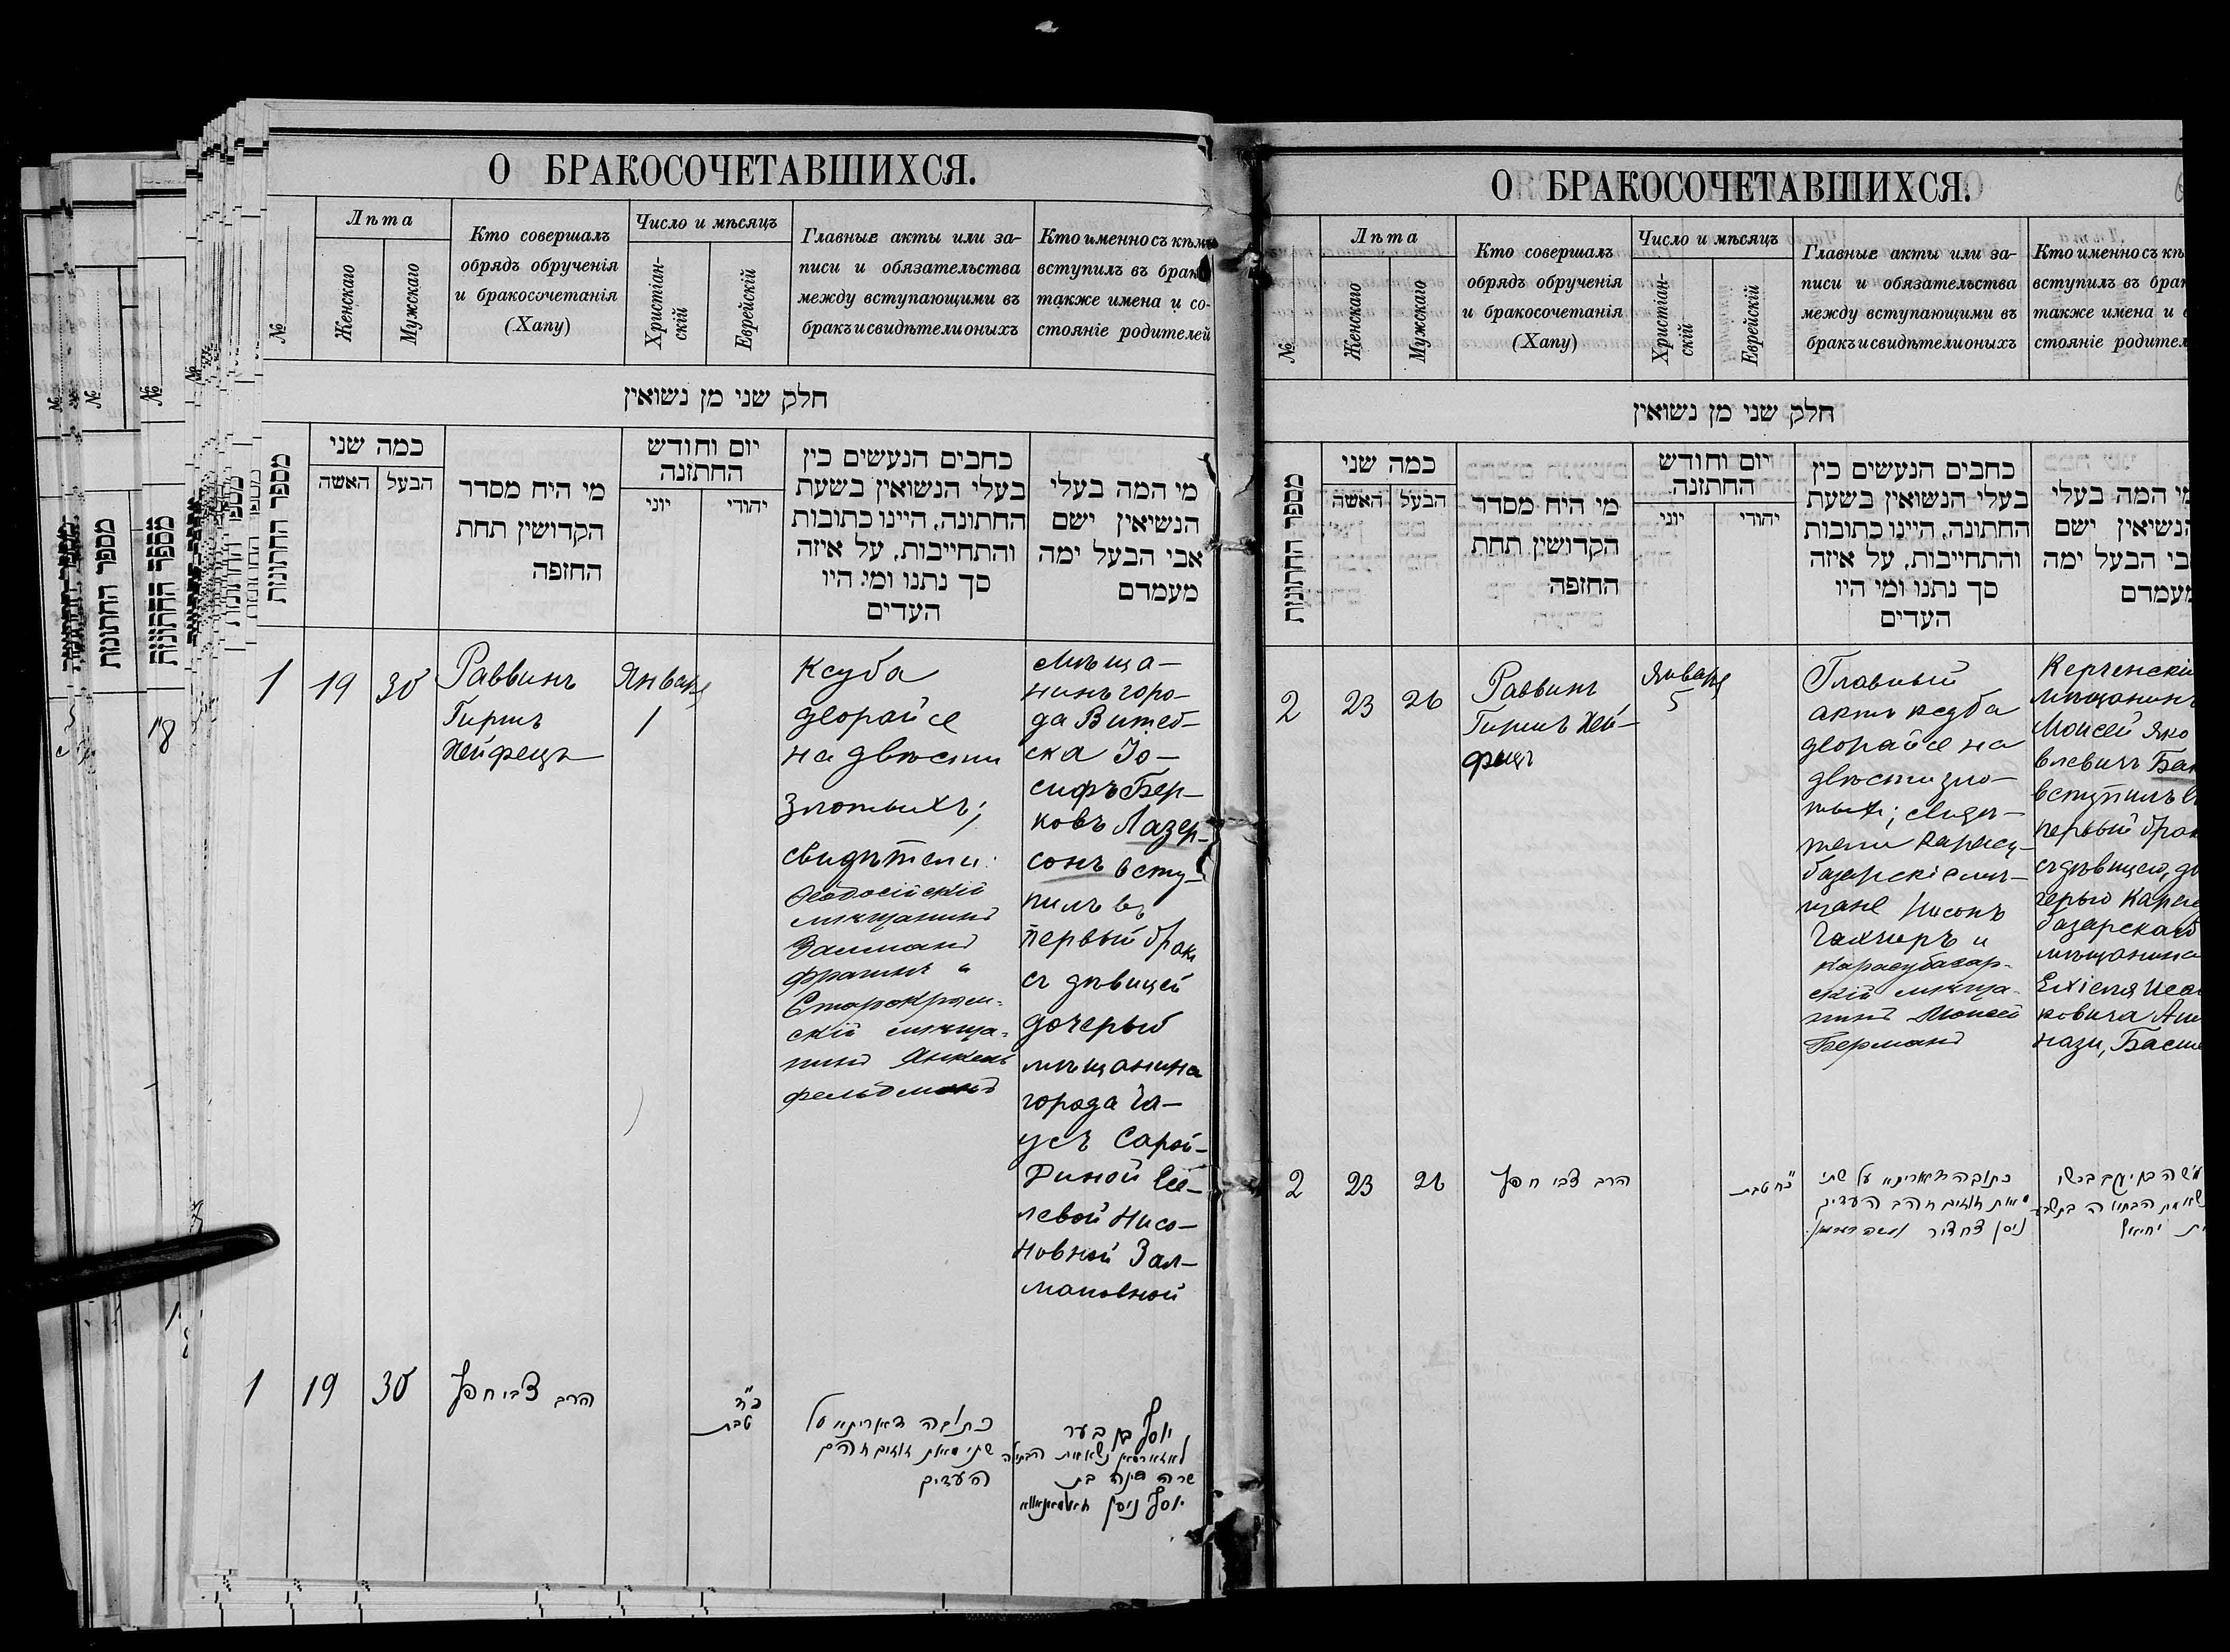 О БРАКОСОЧЕТАВШИХСЯ.
№
Лѣта
Женскаго
Мужскаго
Кто совершалъ
обрядъ обрученія
и бракосочетанія
(Хапу)
Число и мѣсяцъ
Христіан-
скій
Еврейскій
Главные акты или за-
писи и обязательства
между вступающими въ
бракъ и свидѣтели оныхъ
Кто именно съ кѣмъ
вступилъ въ бракъ
также имена и со-
стояніе родителей
חלק שני מן נשואין
מספר החתונות
כמה שני
האשה
הבעל
מי היח מסדר
הקדושין תחת
החזפה
יום וחודש
החתזנה
יוני
יהודי
כחבים הנעשים כין
בעלי הנשואין בשעת
החתונה, היינו כתובות
והתחייבות, על איזה
סך נתנו ומי היו
העדים
מי המה בעלי
הנשיאין ישם
אבי הבעל ימה
מעמדם
1
19
30
Раввинъ
Гиршъ
Хейфецъ
Января
1
Ксуба
деорайсе
на двѣсти
злотыхъ;
свидѣтели:
Ѳеодосійскій
мѣщанинъ
Залманъ
Фрагинъ и
Старокрым-
скій мѣща-
нинъ Янкель
Фельдманъ
Мѣща-
нинъ горо-
да Витеб-
ска Іо-
сифъ Бер-
ковъ Лазер-
сонъ всту-
пилъ въ
первый бракъ
съ дѣвицей
дочерью
мѣщанина
города Ча-
усъ Сарой-
Диной
Нисо-
новной Зал-
мановной
1
19
30
הרב צבי חפץ
טבת
כתובה דאריתא על
שתי מאות זוזים
העדים
יוסף בן בער
הבתולה
שרה דינה בת
יוסף ניסן
О БРАКОСОЧЕТАВШИХСЯ.
№
Лѣта
Женскаго
Мужскаго
Кто совершалъ
обрядъ обрученія
и бракосочетанія
(Хапу)
Число и мѣсяцъ
Христіан-
скій
Еврейскій
Главные акты или за-
писи и обязательства
между вступающими въ
бракъ и свидѣтели оныхъ
Кто именно съ кѣ
вступилъ въ брак
также имена и с
стояніе родител
חלק שני מן נשואין
מספר החתונות
כמה שני
האשה
הבעל
מי היח מסדר
הקדושין תחת
החזפה
יום וחודש
החתזנה
יוני
יהודי
כחבים הנעשים כין
בעלי הנשואין בשעת
החתונה, היינו כתובות
והתחייבות, על איזה
סך נתנו ומי היו
העדים
מי המה בעלי
הנשיאין ישם
אבי הבעל ימה
מעמדם
2
23
26
Раввинъ
Гиршъ Хей-
фецъ
Января
5
Главный
актъ ксуба
деорайсе на
двѣсти зло-
тыхъ; свидѣ-
тели Карасу-
базарскіе мѣ-
щане Нисонъ
Чахчиръ и
Карасубазар-
скій мѣща-
нинъ Моисей
Берманъ
Керченскі
мѣщанинъ
Моисей Яко
влевичъ Бак
вступилъ въ
первый брак
съ дѣвицею, до
черью Карасу
базарскаго
мѣщанина
Ехіеля Исаа
ковича Аш
нази, Басше
2
23
26
הרב צבי חפץ
כ"ח טבת
כתובה דאריתא על שתי
מאות זוזים העדים
ניסן
משה בן יעקב
יחיאל